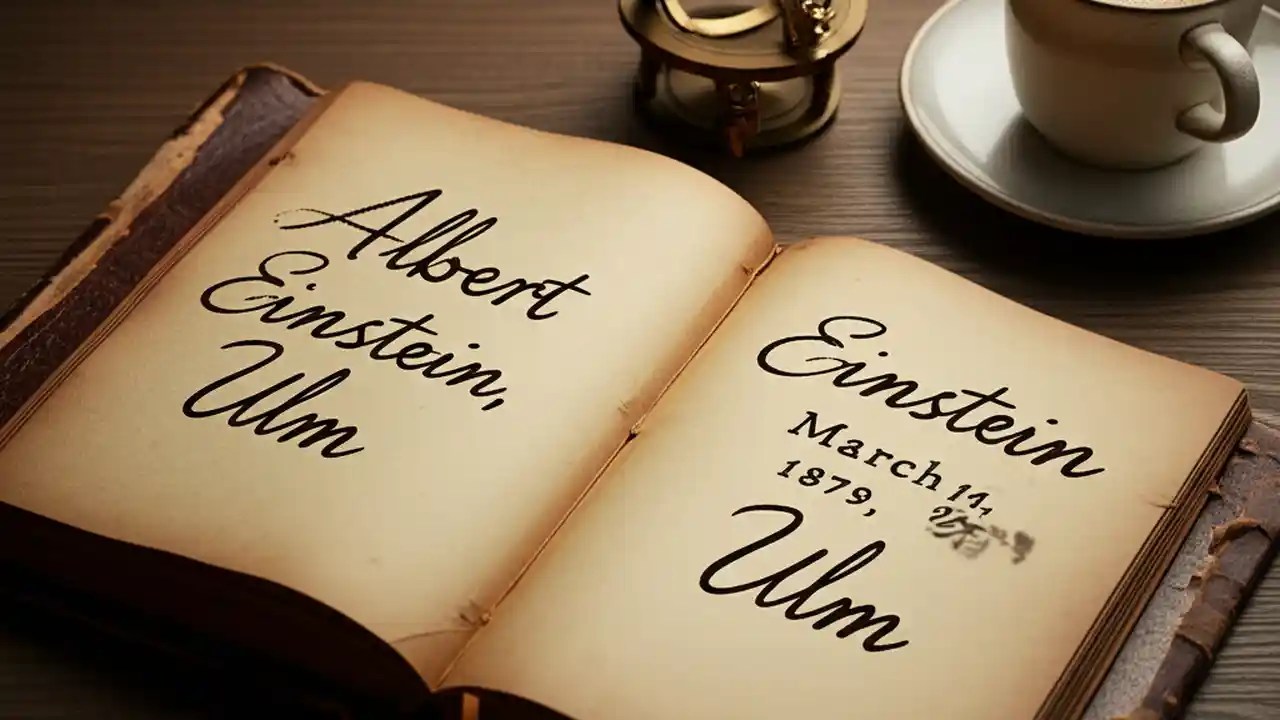 Albert
Einstein,
Ulm
Einstein
March 14,
1879,
Ulm